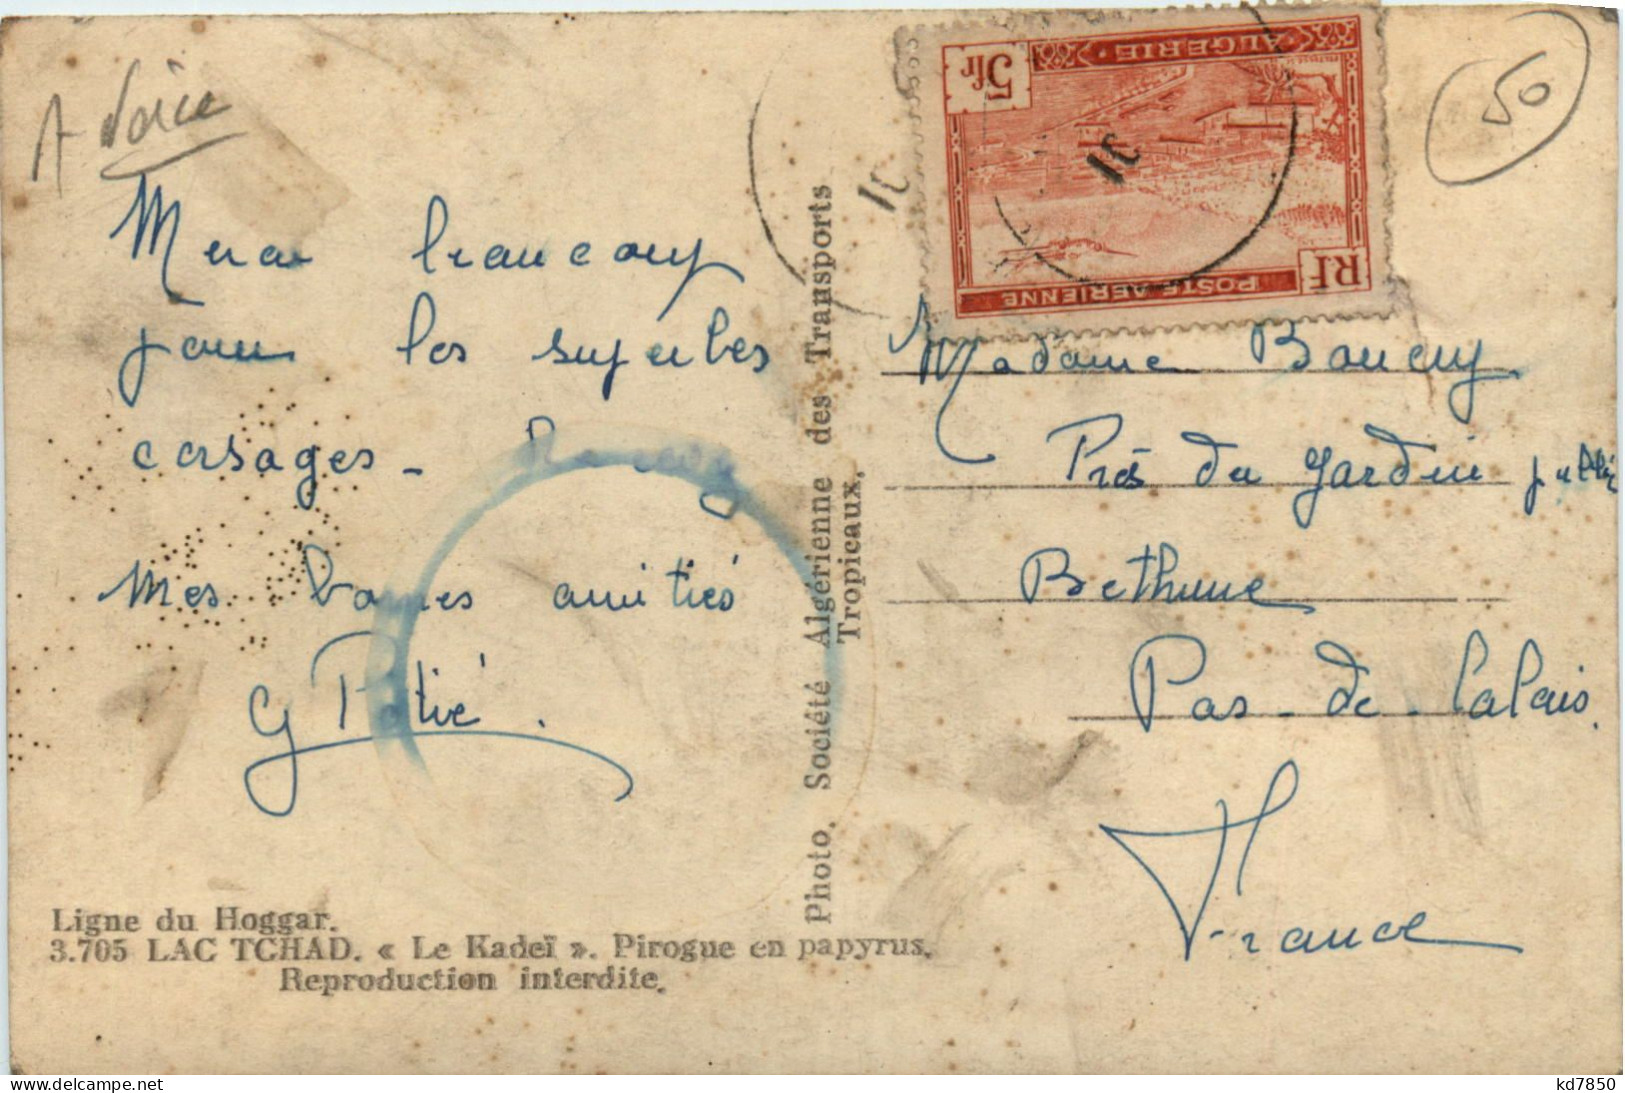 A
50
ALGERIE
5fr
RF
POSTE AERIENNE
Merci beaucoup
pour les superbes
corsages -
Mes bonnes amitiés
G Potivé.
Photo. Société Algérienne des Transports
Tropicaux.
Madame Boucry
Près du Jardin public
Bethune
Pas-de-Calais.
France
Ligne du Hoggar.
3.705 LAC TCHAD. « Le Kadeï ». Pirogue en papyrus.
Reproduction interdite.
kd7850